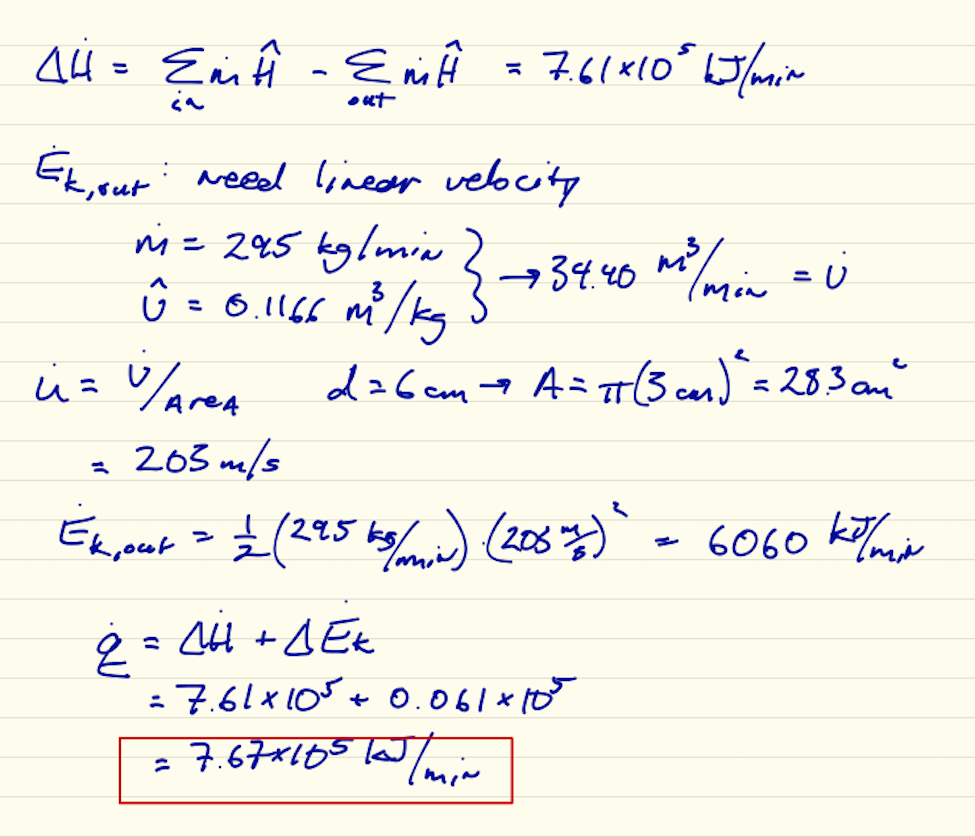 ΔḢ = Σ_in ṁĤ - Σ_out ṁĤ = 7.61×10⁵ kJ/min
Ė_k,out : need linear velocity
ṁ = 295 kg/min } → 34.40 m³/min = V̇
V̂ = 0.1166 m³/kg
u̇ = V̇/Area d = 6 cm → A = π(3 cm)² = 28.3 cm²
= 203 m/s
Ė_k,out = 1/2 (295 kg/min) · (203 m/s)² = 6060 kJ/min
Q̇ = ΔḢ + ΔĖk
= 7.61×10⁵ + 0.061×10⁵
= 7.67×10⁵ kJ/min